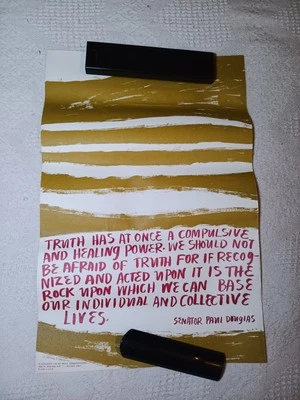 TRUTH HAS AT ONCE A COMPULSIVE
AND HEALING POWER. WE SHOULD NOT
BE AFRAID OF TRUTH FOR IF RECOG-
NIZED AND ACTED UPON IT IS THE
ROCK UPON WHICH WE CAN BASE
OUR INDIVIDUAL AND COLLECTIVE
LIVES.
SENATOR PAUL DOUGLAS